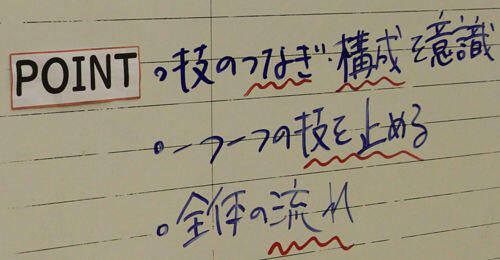 POINT 。技のつなぎ・構成を意識
。一つ一つの技を止める
。全体の流れ